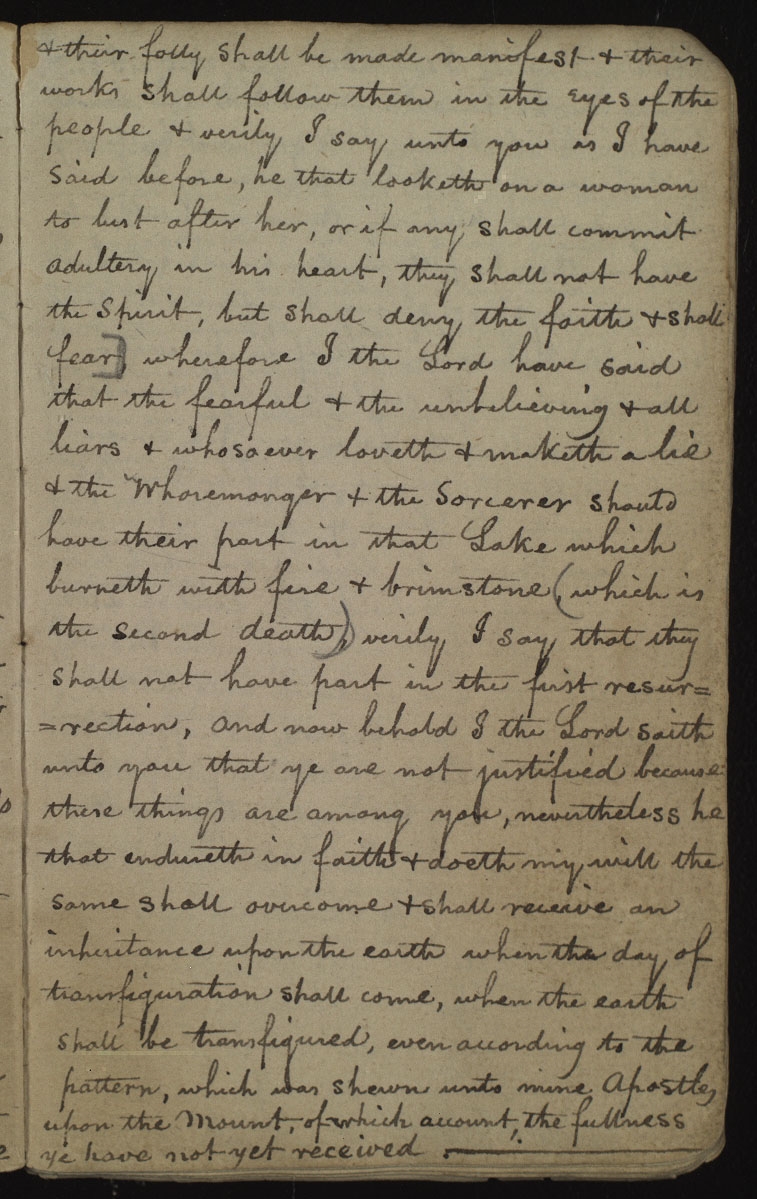 & their folly shall be made manifest & their
works shall follow them in the eyes of the
people & verily I say unto you as I have
said before, he that looketh on a woman
to lust after her, or if any shall commit
adultery in his heart, they shall not have
the Spirit, but shall deny the faith & shall
fear] wherefore I the Lord have said
that the fearful & the unbelieving & all
liars & whosoever loveth & maketh a lie
& the Whoremonger & the Sorcerer should
have their part in that Lake which
burneth with fire & brimstone (which is
the second death,) verily I say that they
shall not have part in the first resur=
=rection, and now behold I the Lord saith
unto you that ye are not justified because
these things are among you, nevertheless he
that endureth in faith & doeth my will the
same shall overcome & shall receive an
inheritance upon the earth when the day of
transfiguration shall come, when the earth
shall be transfigured, even according to the
pattern, which was shewn unto mine Apostles
upon the Mount, of which account, the fullness
ye have not yet received.